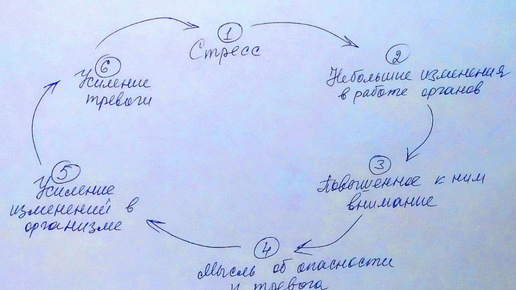 1
Стресс
2
Небольшие изменения
в работе органов
3
Повышенное к ним
внимание
4
Мысль об опасности
и тревога
5
Усиление
изменений в
организме
6
Усиление
тревоги